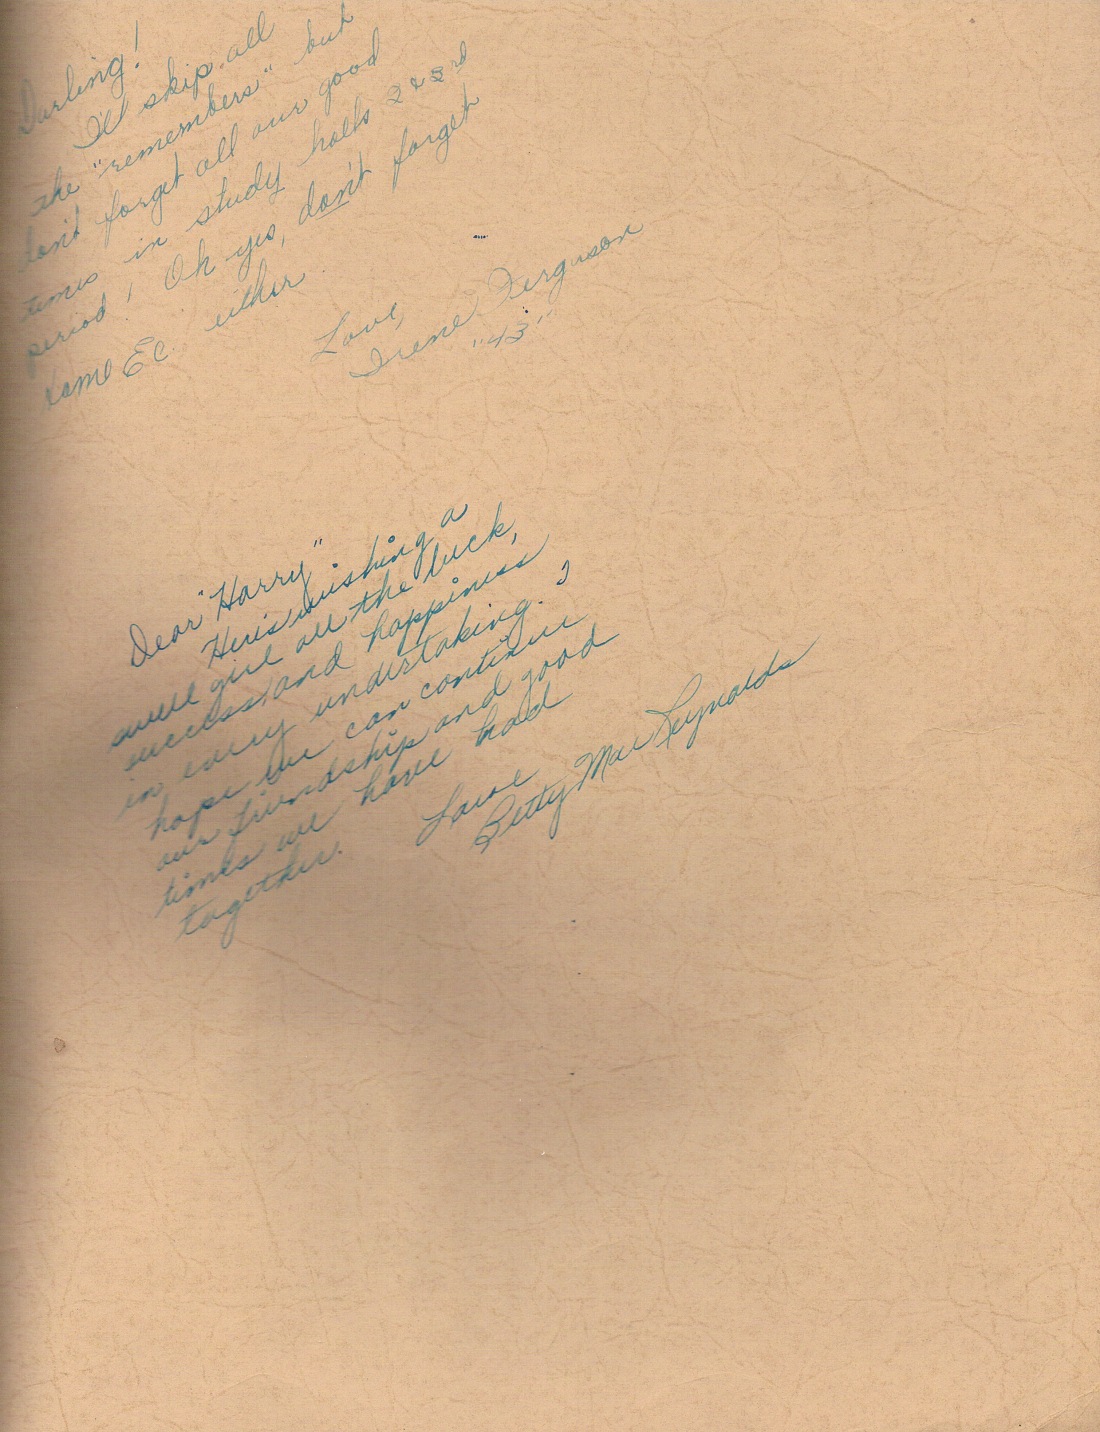 Darling!
I'll skip all
the "remembers" but
don't forget all our good
times in study halls 2 & 3rd
period! Oh yes, don't forget
Home Ec. either
Love,
Irene Ferguson
"43"
Dear "Harry"
Here's wishing a
swell girl all the luck,
success and happiness
in every undertaking. I
hope we can continue
our friendship and good
times we have had
together.
Love
Betty Mae Reynolds